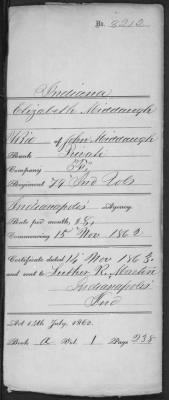 No. 8212
Indiana
Elizabeth Middaugh
Wid of John Middaugh
Rank Private
Company "D"
Regiment 79" Ind Vols
Indianapolis Agency.
Rate per month, $8,
Commencing 15" Nov 1862
Certificate dated 14" Nov 1863.
and sent to Luther R. Martin
Indianapolis
Ind
Act 14th July, 1862.
Book A Vol. 1 Page 238